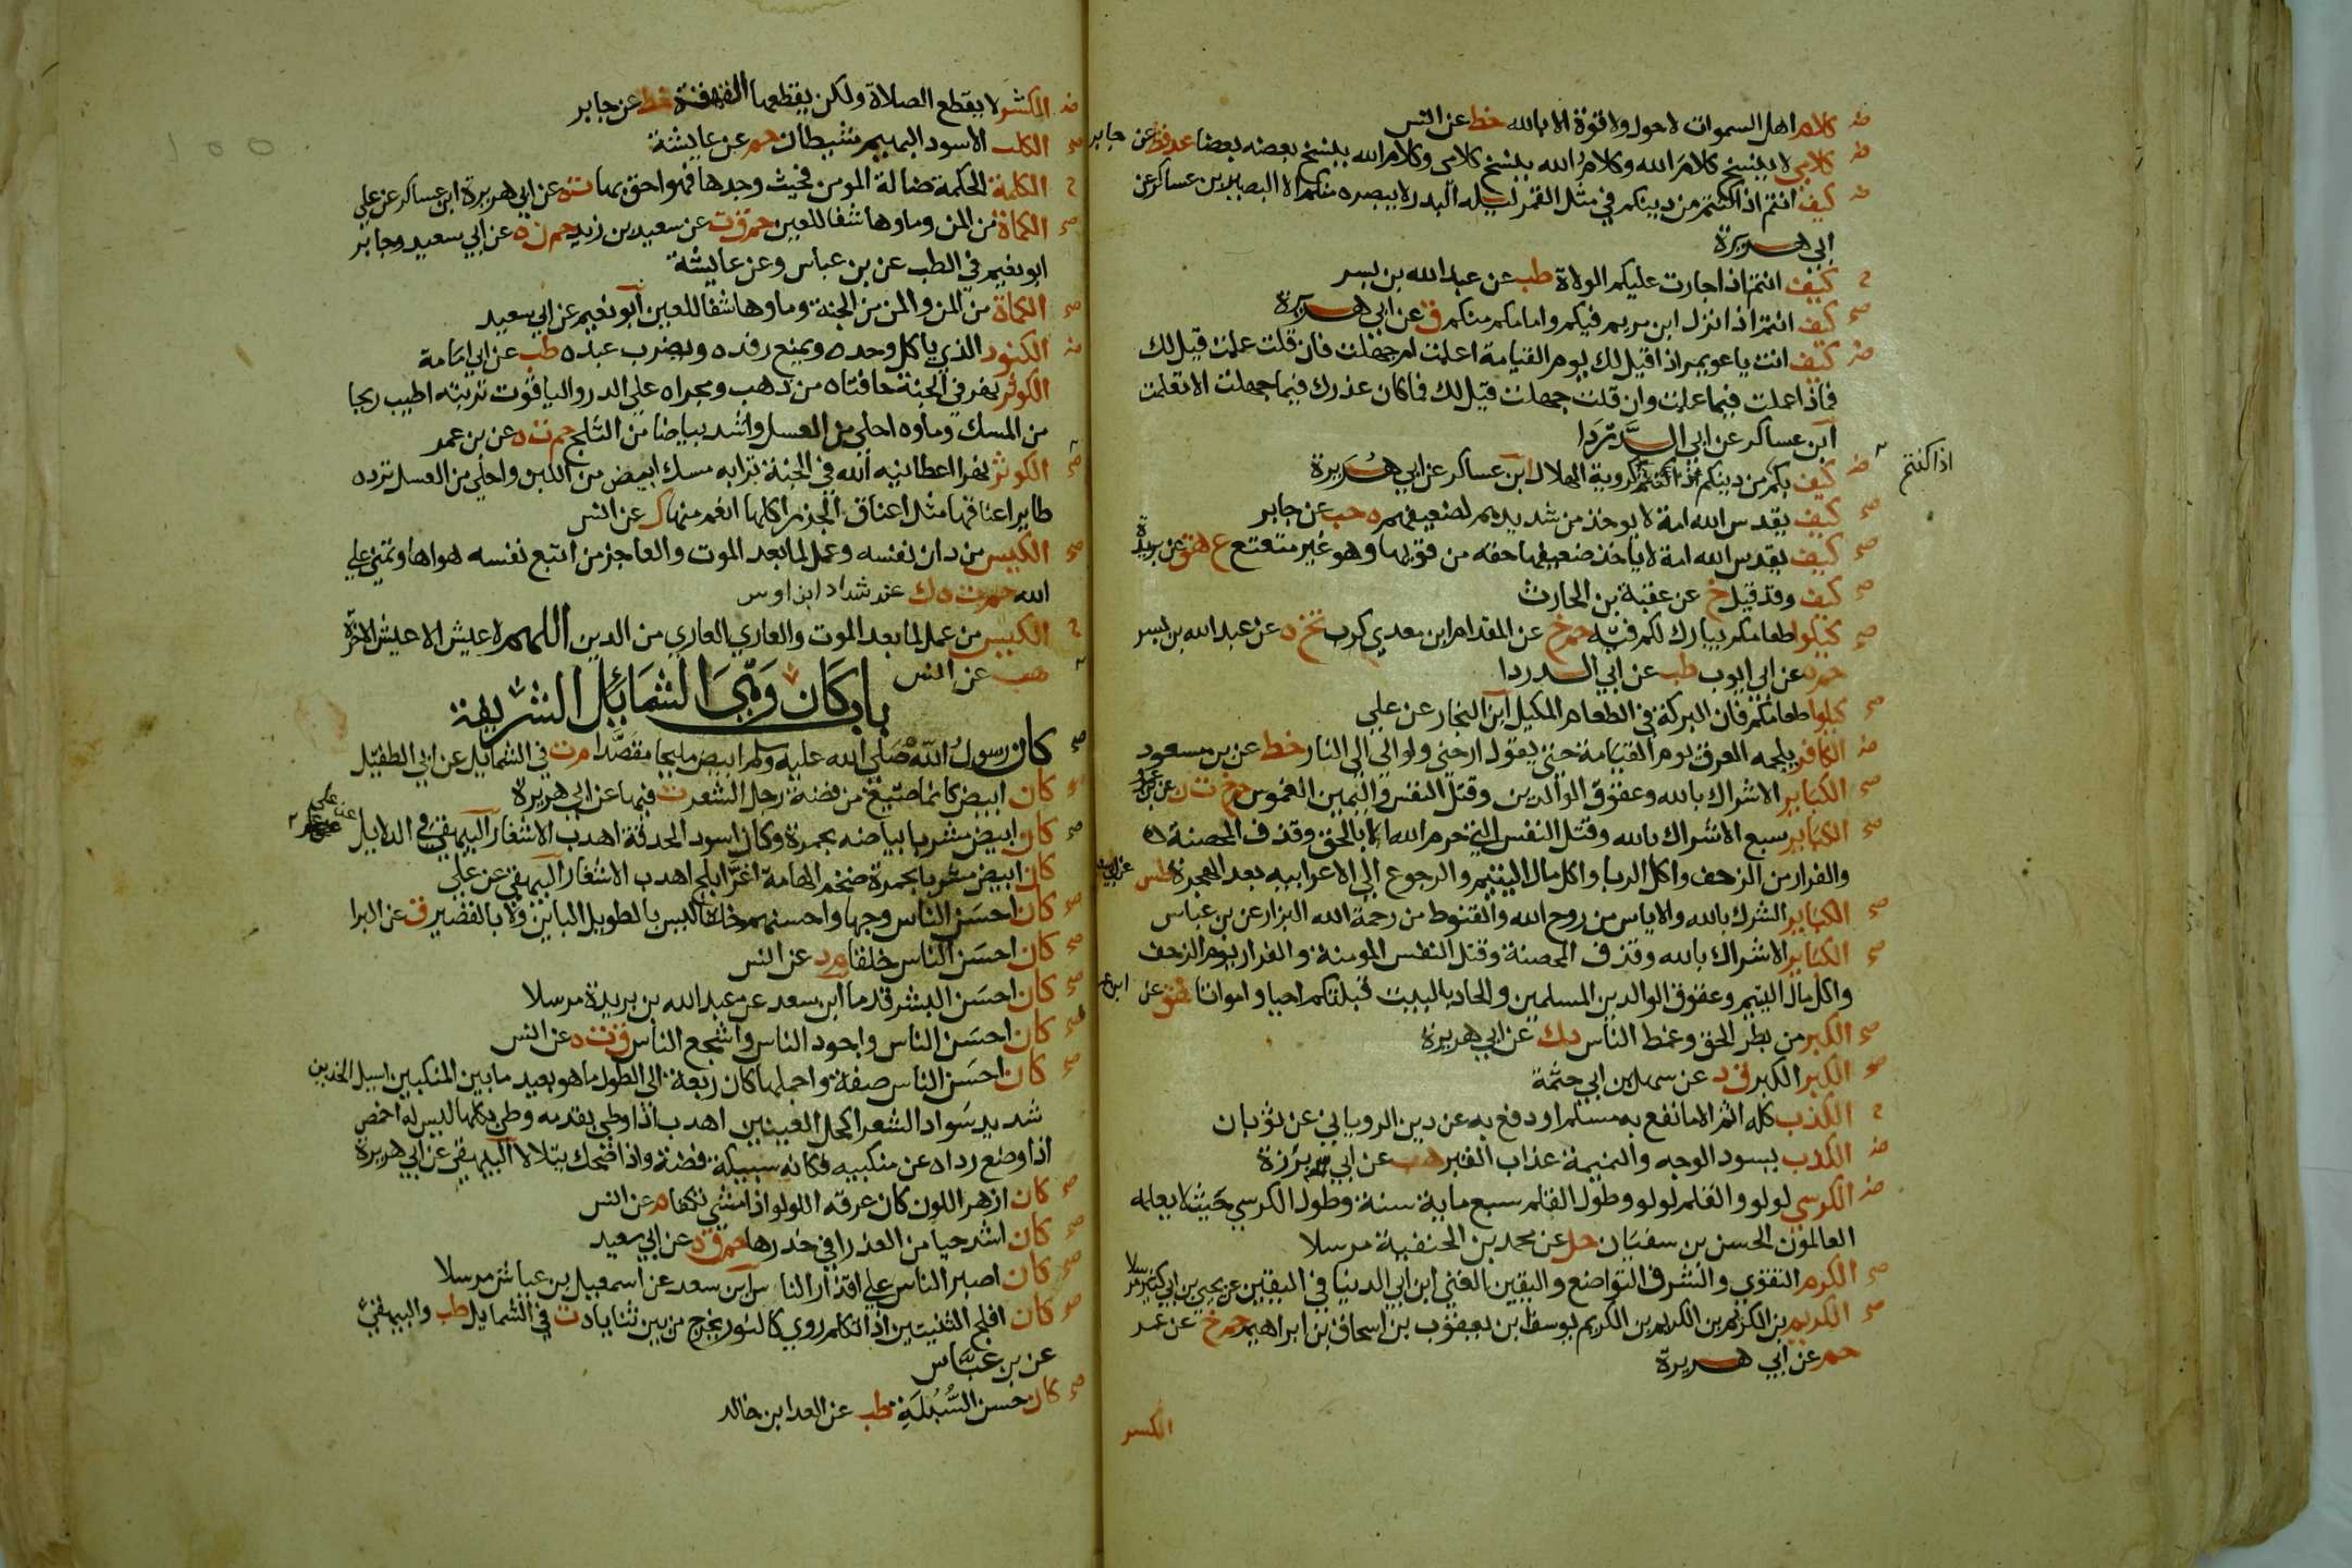 ض كلام اهل السموات لاحول ولا قوة الا بالله خط عن انس
ض كلامي لا ينسخ كلام الله وكلام الله ينسخ كلامي وكلام الله ينسخ بعضه بعضا عد قط عن جابر
ض كيف انتم اذا كنتم من دينكم في مثل القمر ليلة البدر لا يبصره منكم الا البصير ابن عساكر عن
ابي هريرة
ح كيف انتم اذا جارت عليكم الولاة طب عن عبد الله بن بسر
صح كيف انتم اذا نزل ابن مريم فيكم وامامكم منكم ق عن ابي هريرة
ض كيف انت يا عويمر اذا قيل لك يوم القيامة اعلمت ام جهلت فان قلت علمت قيل لك
فماذا عملت فيما علمت وان قلت جهلت قيل لك فما كان عذرك فيما جهلت الا تعلمت
ابن عساكر عن ابي الدردا
ض كيف بكم من دينكم اذا كنتم كروية الهلال ابن عساكر عن ابي هريرة
اذا كنتم
صح كيف يقدس الله امة لا يوخذ من شديدهم لضعيفهم ه حب عن جابر
صح كيف يقدس الله امة لا ياخذ ضعيفها حقه من قويها وهو غير متعتع ع هق عن بريدة
صح كيف وقد قيل خ عن عقبة بن الحارث
صح كيلوا طعامكم يبارك لكم فيه حم خ عن المقدام ابن معدي كرب تخ ه عن عبد الله بن بسر
حم ه عن ابي ايوب طب عن ابي الدردا
صح كيلوا طعامكم فان البركة في الطعام المكيل ابن النجار عن علي
ض الكافر يلجمه العرق يوم القيامة حتى يقول ارحني ولو الى النار خط عن بن مسعود
صح الكباير الاشراك بالله وعقوق الوالدين وقتل النفس واليمين الغموس حم خ ت ن عن بن عمر
صح الكباير سبع الاشراك بالله وقتل النفس التي حرم الله الا بالحق وقذف المحصنة
والفرار من الزحف واكل الربا واكل مال اليتيم والرجوع الى الاعرابيه بعد الهجرة طس عن ابي سعيد
صح الكباير الشرك بالله والاياس من روح الله والقنوط من رحمة الله البزار عن بن عباس
صح الكباير الاشراك بالله وقذف المحصنة وقتل النفس المومنة والفرار يوم الزحف
واكل مال اليتيم وعقوق الوالدين المسلمين والحاد بالبيت قبلتكم احيا وامواتا هق عن ابن عمر
صح الكبر من بطر الحق وغمط الناس د ك عن ابي هريرة
صح الكبر الكبر ق د عن سهل بن ابي حثمة
ح الكذب كله اثم الا ما نفع به مسلم او دفع به عن دين الروياني عن ثوبان
ض الكذب يسود الوجه والنميمة عذاب القبر هب عن ابي برزة
ض الكرسي لولو والقلم لولو وطول القلم سبع ماية سنة وطول الكرسي حيث لا يعلمه
العالمون الحسن بن سفيان حل عن محمد بن الحنفية مرسلا
صح الكرم التقوي والشرف التواضع واليقين الغني ابن ابي الدنيا في اليقين عن يحيي بن ابي كثير مرسلا
صح الكريم بن الكريم بن الكريم بن الكريم يوسف ابن يعقوب بن اسحاق بن ابراهيم حم خ عن عمر
حم عن ابي هريرة
الكسر
ض الكشر لا يقطع الصلاة ولكن يقطعها القهقهة خط عن جابر
صح الكلب الاسود البهيم شيطان حم عن عايشة
ح الكلمة الحكمة ضالة المومن فحيث وجدها فهو احق بها ت ه عن ابي هريرة ابن عساكر عن علي
صح الكماة من المن وماوها شفا للعين حم ق ت عن سعيد بن زيد حم ن ه عن ابي سعيد وجابر
ابو نعيم في الطب عن بن عباس وعن عايشة
صح الكماة من المن والمن من الجنة وماوها شفا للعين ابو نعيم عن ابي سعيد
ض الكنود الذي ياكل وحده ويمنع رفده ويضرب عبده طب عن ابي امامة
الكوثر نهر في الجنة حافتاه من ذهب ومجراه علي الدر والياقوت تربته اطيب ريحا
من المسك وماوه احلي من العسل واشد بياضا من الثلج حم ت ه عن بن عمر
صح الكوثر نهر اعطانيه الله في الجنة ترابه مسك ابيض من اللبن واحلي من العسل ترده
طاير اعناقها مثل اعناق الجزر اكلها انعم منها ك عن انس
صح الكيس من دان نفسه وعمل لما بعد الموت والعاجز من اتبع نفسه هواها وتمني علي
الله حم ت ه ك عن شداد ابن اوس
ح الكيس من عمل لما بعد الموت والعاري العاري من الدين اللهم لا عيش الا عيش الاخرة
هب عن انس
باب كان وهي الشمايل الشريفة
صح كان رسول الله صلي الله عليه وسلم ابيض مليحا مقصدا م ت في الشمايل عن ابي الطفيل
كان ابيض كانما صيغ من فضة رجل الشعر ت فيها عن ابي هريرة
صح كان ابيض مشربا بياضه بحمرة وكان اسود الحدقة اهدب الاشفار البيهقي في الدلايل عن علي
كان ابيض مشربا بحمرة ضخم الهامة اغر ابلج اهدب الاشفار البيهقي عن علي
صح كان احسن الناس وجها واحسنهم خلقا ليس بالطويل الباين ولا بالقصير ق عن البرا
صح كان احسن الناس خلقا م د عن انس
صح كان احسن البشر قدما ابن سعد عن عبد الله بن بريدة مرسلا
صح كان احسن الناس واجود الناس واشجع الناس ق ت ه عن انس
صح كان احسن الناس صفة واجملها كان ربعة الى الطول ما هو بعيد ما بين المنكبين اسيل الخدين
شديد سواد الشعر اكحل العينين اهدب اذا وطي بقدمه وطي بكلها ليس له اخمص
اذا وضع رداه عن منكبيه فكانه سبيكة فضة واذا ضحك يتلالا البيهقي عن ابي هريرة
صح كان ازهر اللون كان عرقه اللولو اذا مشي تكفا م عن انس
صح كان اشد حيا من العذرا في خدرها حم ق ه عن ابي سعيد
صح كان اصبر الناس علي اقذار الناس ابن سعد عن اسمعيل بن عياش مرسلا
صح كان افلج الثنيتين اذا تكلم روي كالنور يخرج من بين ثناياه ت في الشمايل طب والبيهقي
عن بن عباس
صح كان حسن السبلة طب عن العدا بن خالد